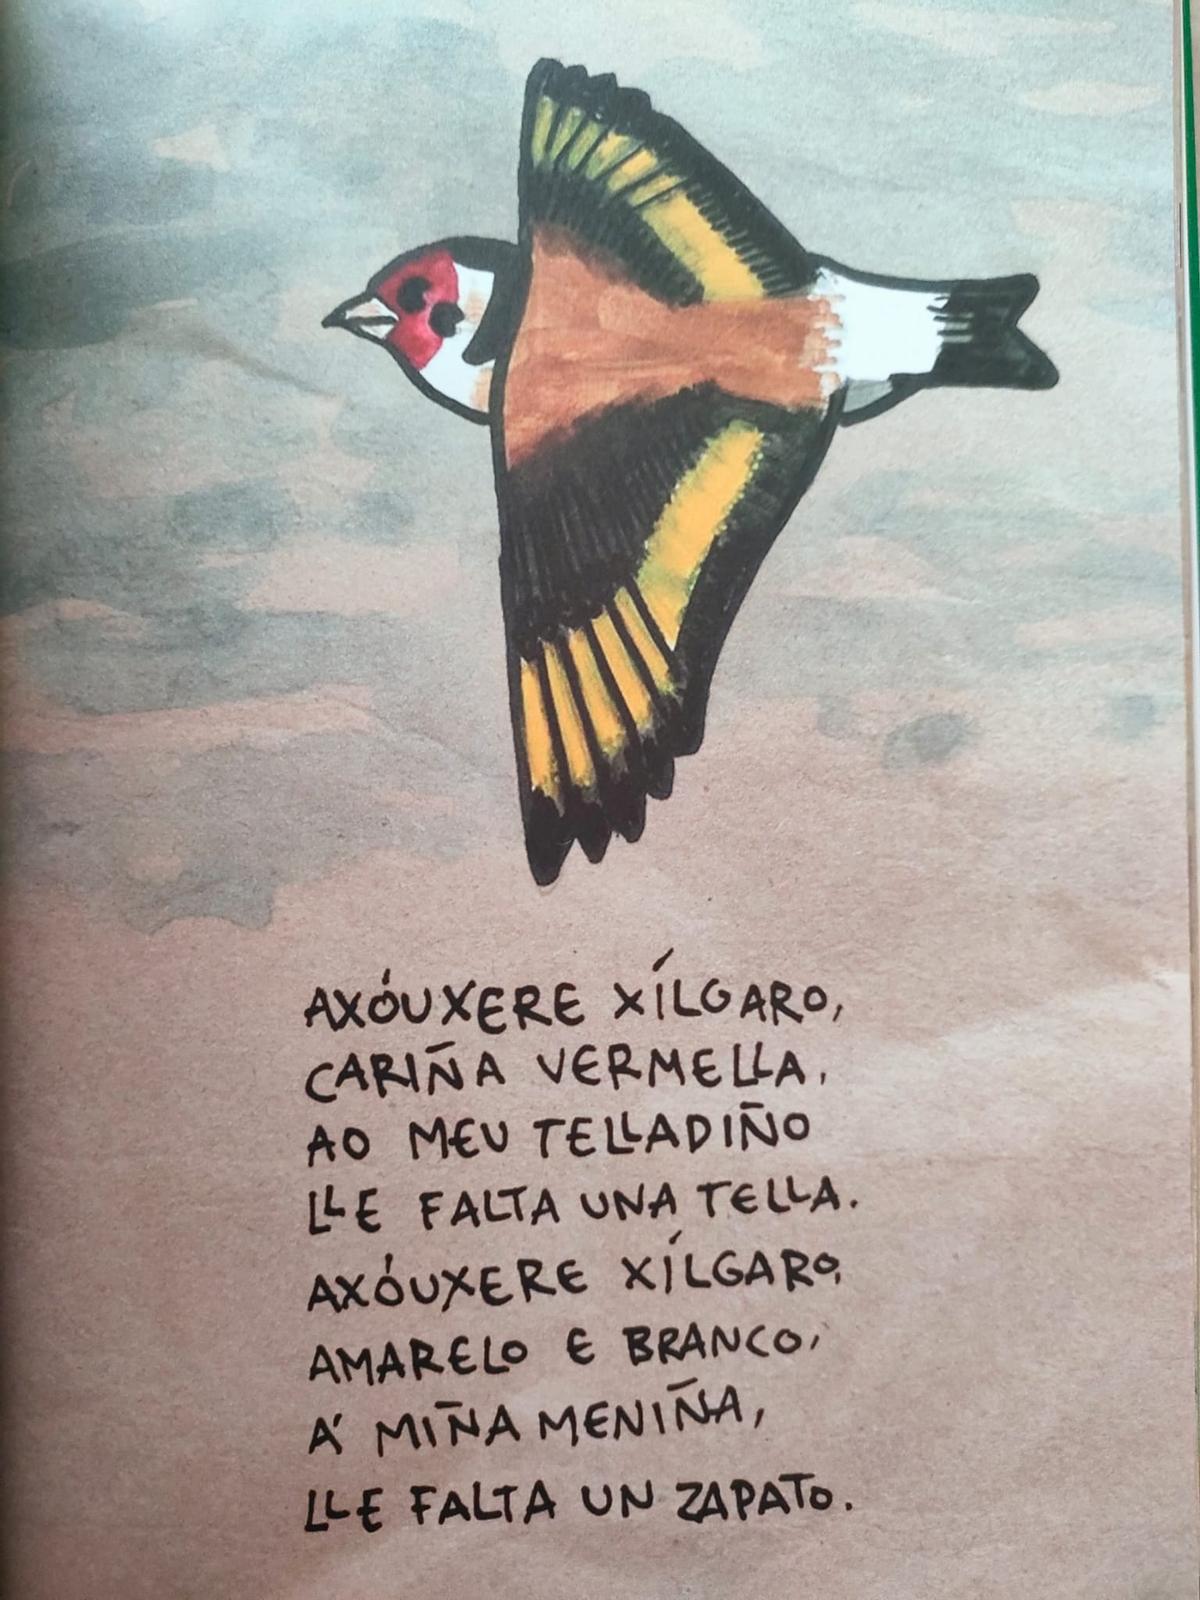 AXÓUXERE XÍLGARO,
CARIÑA VERMELLA,
AO MEU TELLADIÑO
LLE FALTA UNA TELLA.
AXÓUXERE XÍLGARO,
AMARELO E BRANCO,
Á MIÑA MENIÑA,
LLE FALTA UN ZAPATO.